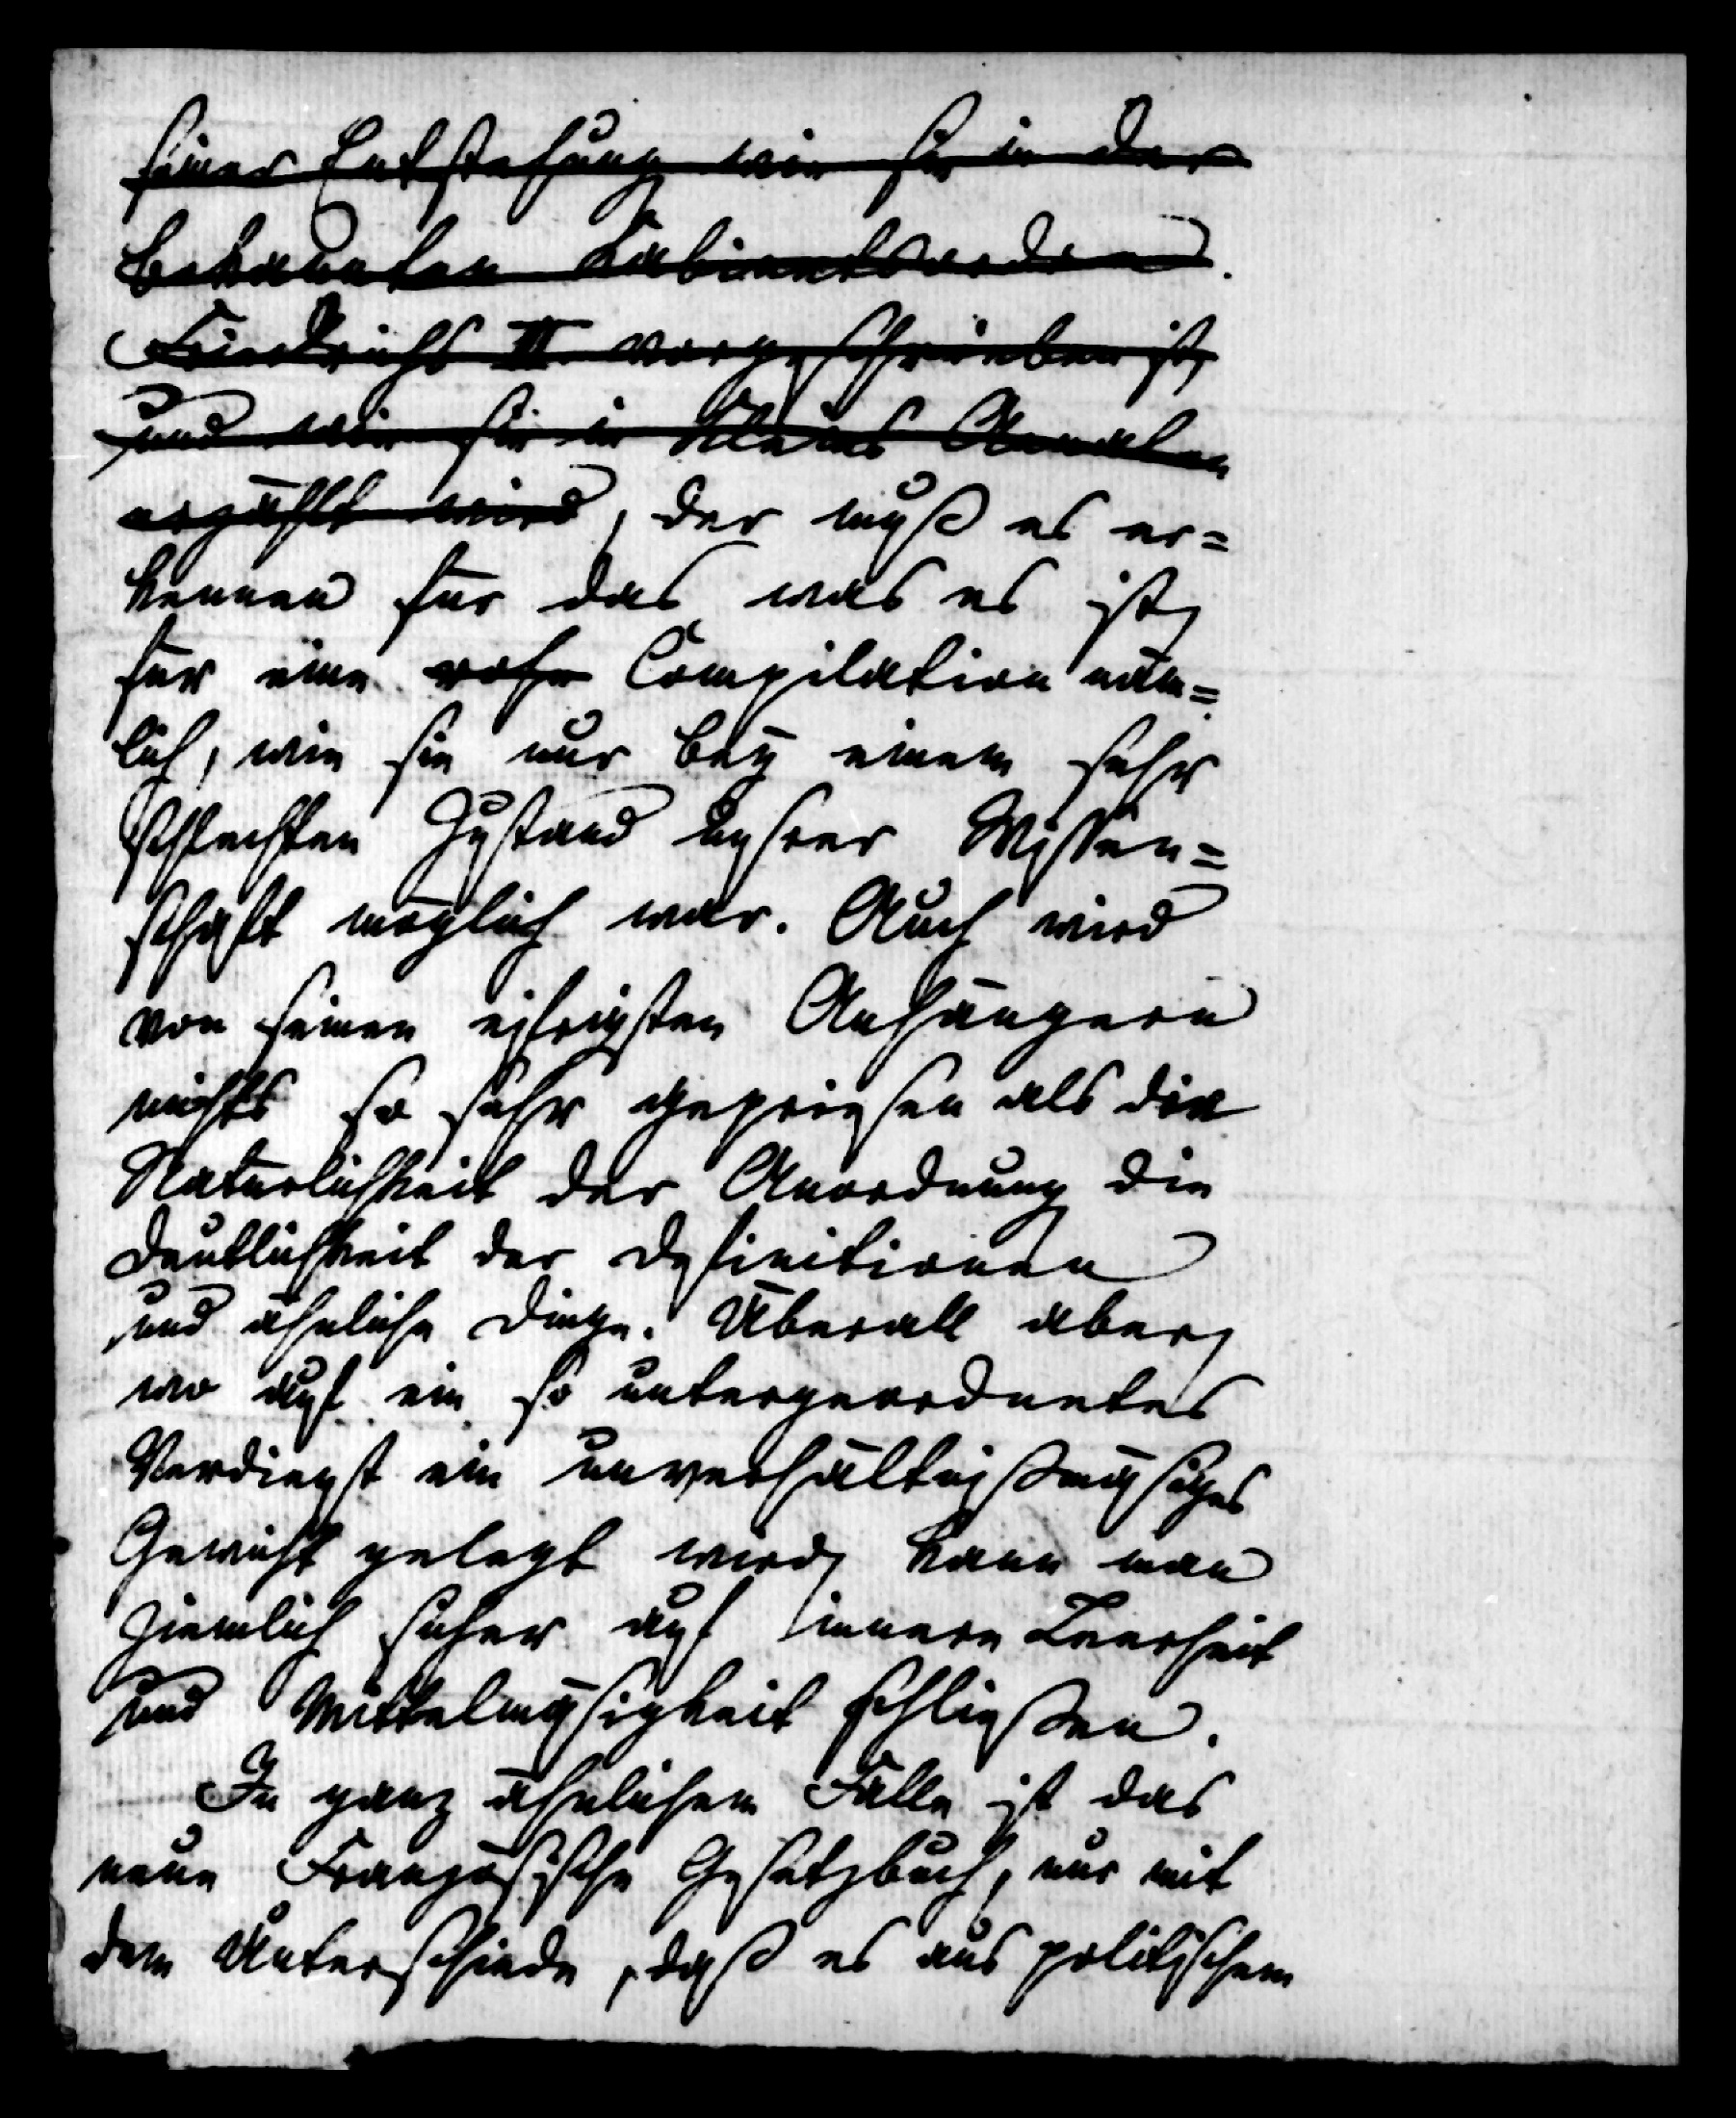 seiner Entstehung wie sie in der
bekannten Kabinetsordre
Friedrichs II vorgeschrieben ist,
und wie sie in Kleins Annalen
erzählt wird, der muß es er=
kennen für das was es ist,
für eine rohe Compilation näm=
lich, wie sie nur bey einem sehr
schlechten Zustand unsrer Wissen=
schaft möglich war. Auch wird
von seinen eifrigsten Anhängern
nichts so sehr gepriesen als die
Natürlichkeit der Anordnung die
Deutlichkeit der Definitionen
und ähnliche Dinge. Überall aber,
wo auf ein so untergeordnetes
Verdienst ein unverhältnißmäsiges
Gewicht gelegt wird, kann man
ziemlich sicher auf innere Leerheit
und Mittelmäsigkeit schließen.
In ganz ähnlichem Falle ist das
neue Französische Gesetzbuch, nur mit
dem Unterschiede, daß es aus politischem